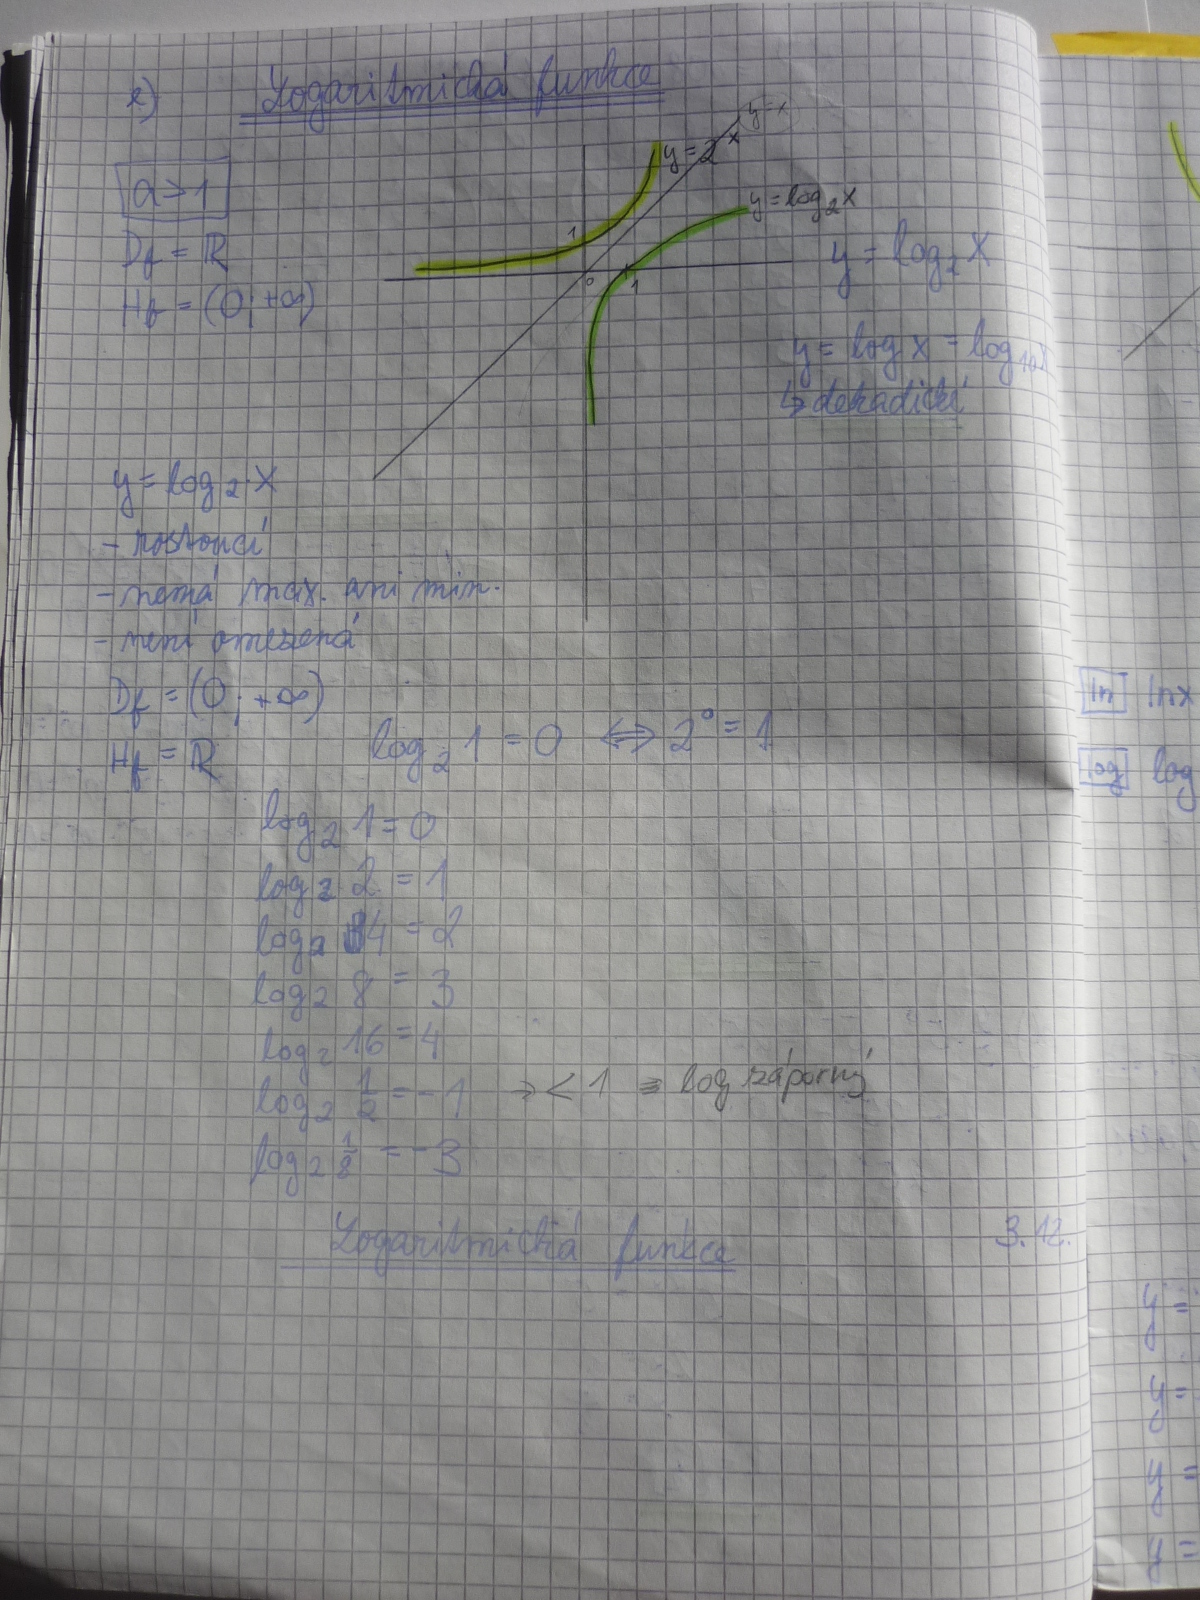 Logaritmická funkce
a > 1
Df = ℝ
Hf = (0; +∞)
y = x
y = 2^x
y = log₂ x
1
0
1
y = log₂ x
y = log x = log₁₀ x
↳ dekadický
y = log₂ x
- rostoucí
- nemá max. ani min.
- není omezená
Df = (0; +∞)
Hf = ℝ
log₂ 1 = 0 ⟺ 2⁰ = 1
log₂ 1 = 0
log₂ 2 = 1
log₂ 4 = 2
log₂ 8 = 3
log₂ 16 = 4
log₂ 1/2 = -1 → < 1 = log záporný
log₂ 1/8 = -3
Logaritmická funkce 3.12.
ln lnx
log log
y =
y =
y =
y =